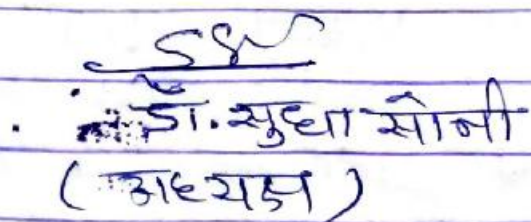 डॉ. सुधा सोनी
(अध्यक्ष)